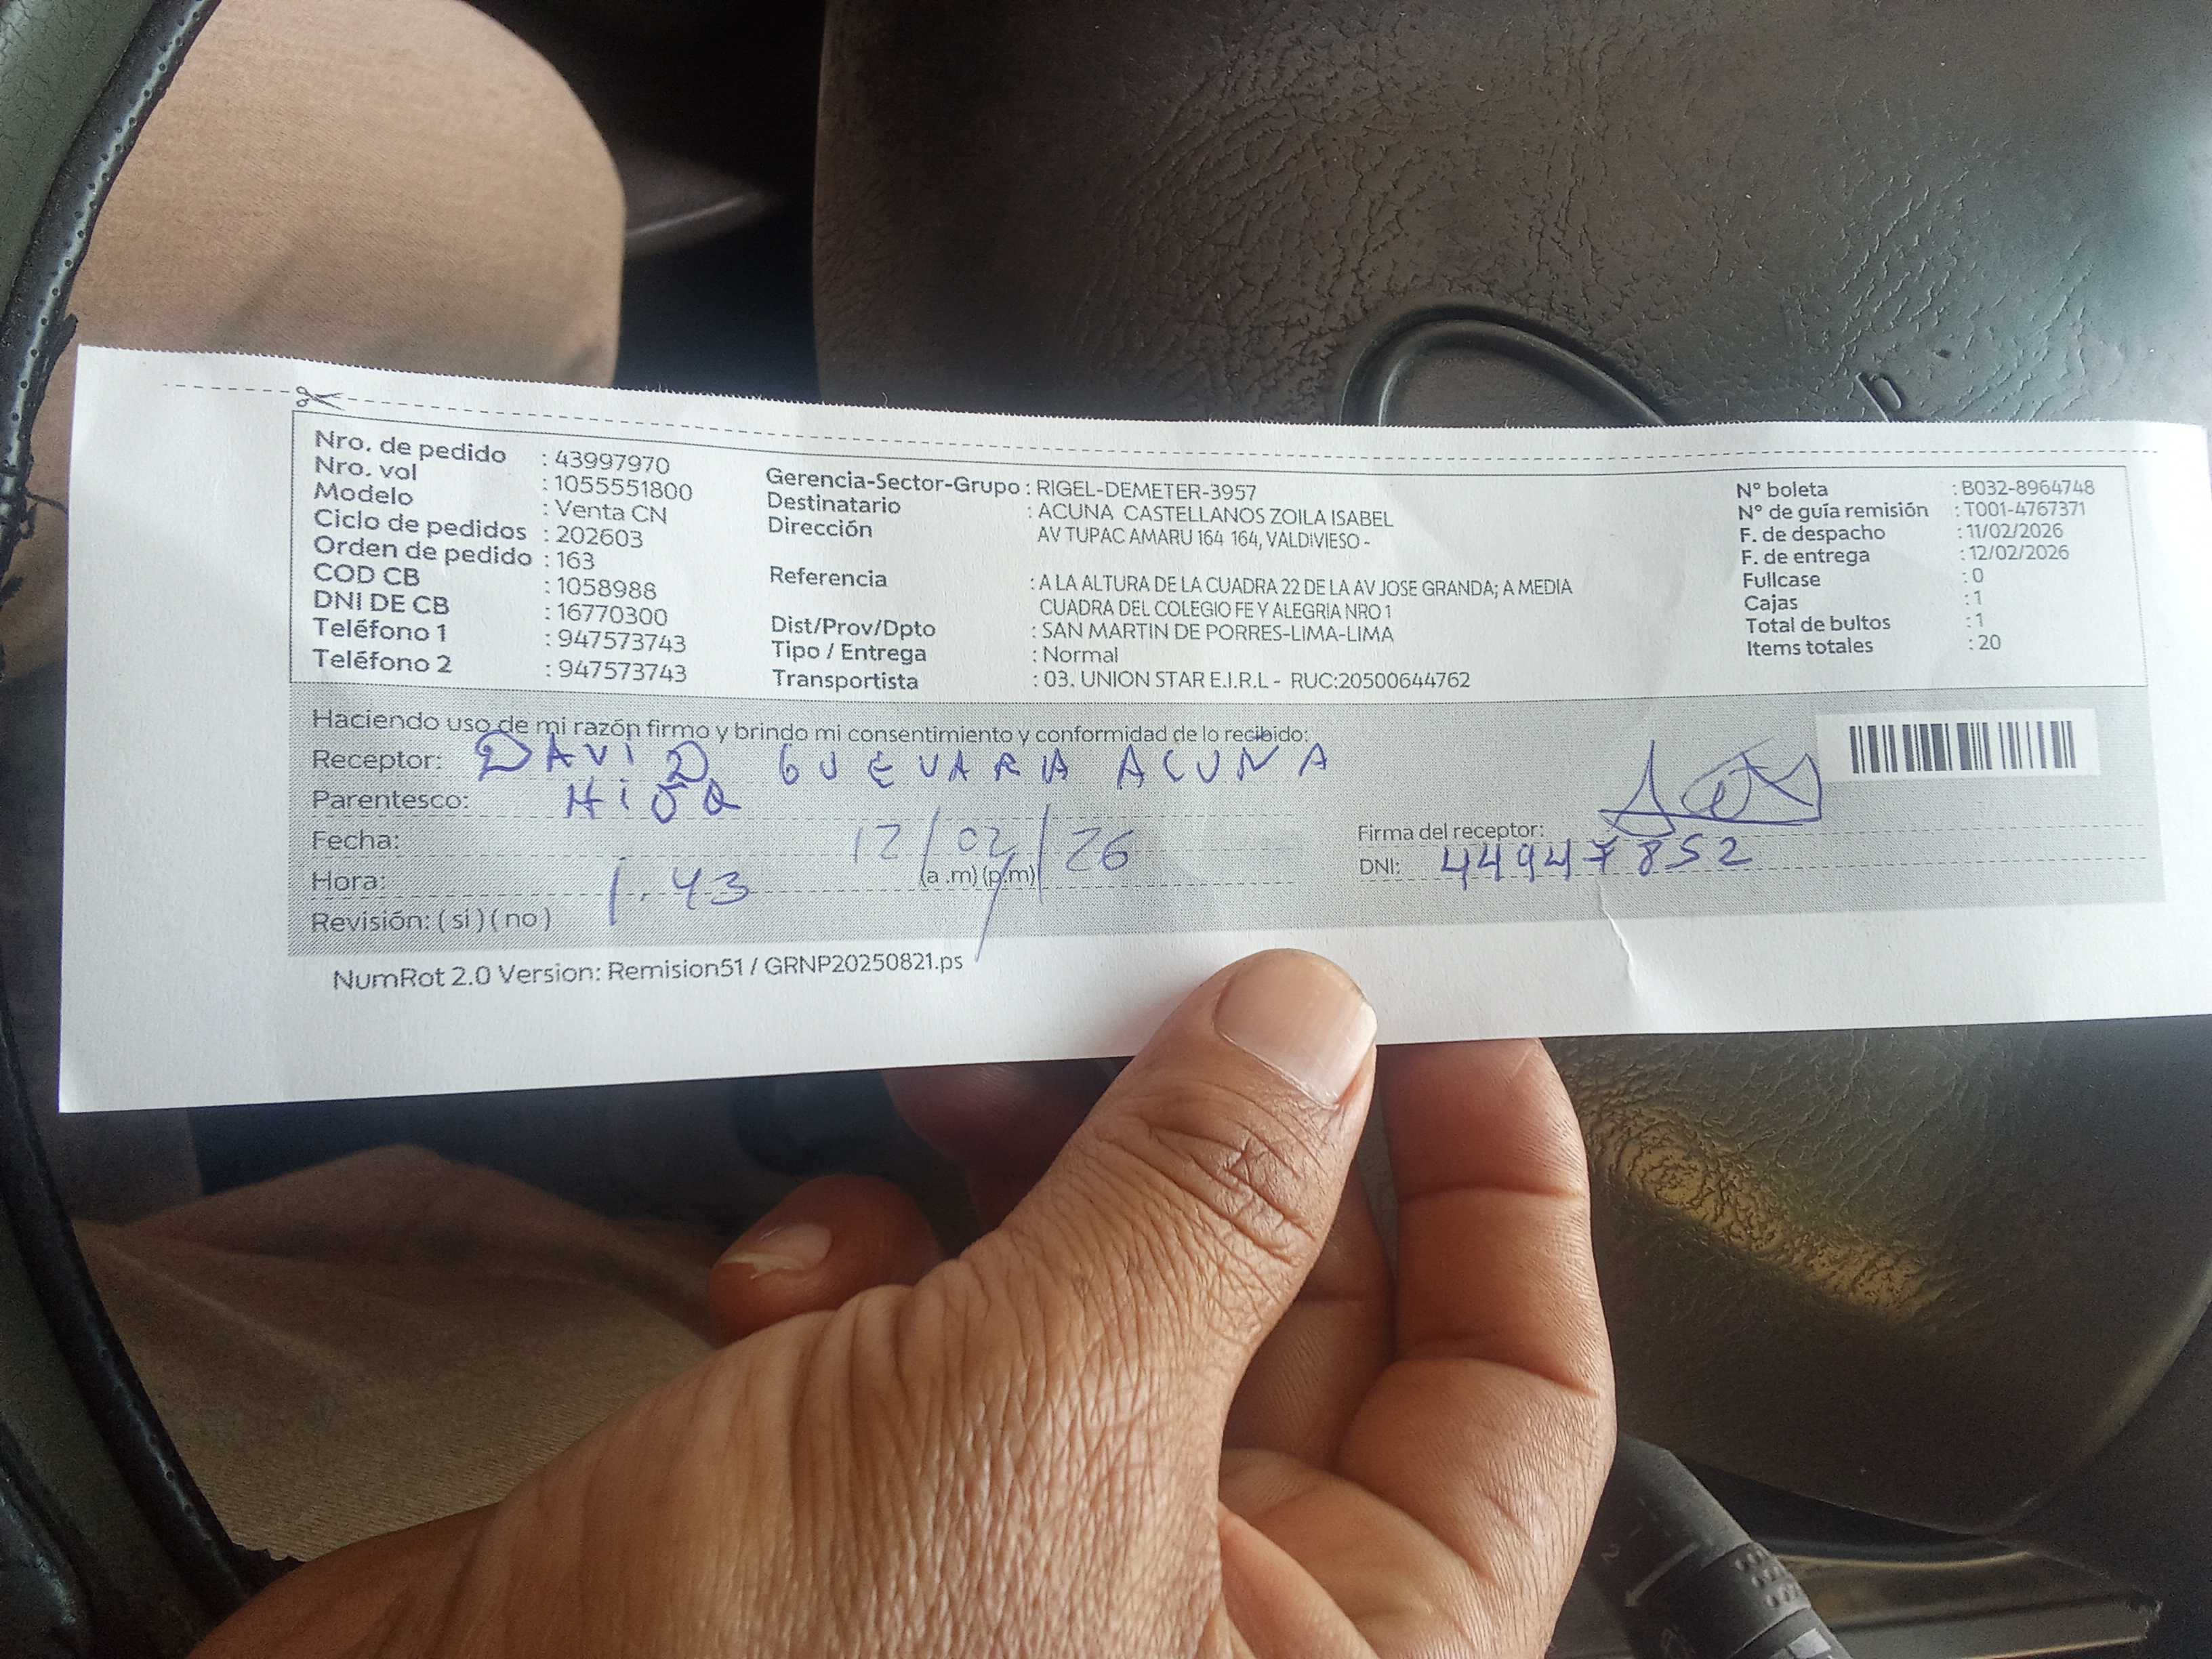 Nro. de pedido : 43997970
Nro. vol : 1055551800
Modelo : Venta CN
Ciclo de pedidos : 202603
Orden de pedido : 163
COD CB : 1058988
DNI DE CB : 16770300
Teléfono 1 : 947573743
Teléfono 2 : 947573743
Gerencia-Sector-Grupo : RIGEL-DEMETER-3957
Destinatario : ACUNA CASTELLANOS ZOILA ISABEL
Dirección AV TUPAC AMARU 164 164, VALDIVIESO -
Referencia : A LA ALTURA DE LA CUADRA 22 DE LA AV JOSE GRANDA; A MEDIA
CUADRA DEL COLEGIO FE Y ALEGRIA NRO 1
Dist/Prov/Dpto : SAN MARTIN DE PORRES-LIMA-LIMA
Tipo / Entrega : Normal
Transportista : 03. UNION STAR E.I.R.L - RUC:20500644762
N° boleta : B032-8964748
N° de guía remisión : T001-4767371
F. de despacho : 11/02/2026
F. de entrega : 12/02/2026
Fullcase : 0
Cajas : 1
Total de bultos : 1
Items totales : 20
Haciendo uso de mi razón firmo y brindo mi consentimiento y conformidad de lo recibido:
Receptor: DAVID GUEVARA ACUÑA
Parentesco: HIJO
Fecha: 12/02/26
Hora: 1.43 (a .m) (p.m)
Revisión: ( si ) ( no )
Firma del receptor:
DNI: 44947852
NumRot 2.0 Version: Remision51 / GRNP20250821.ps